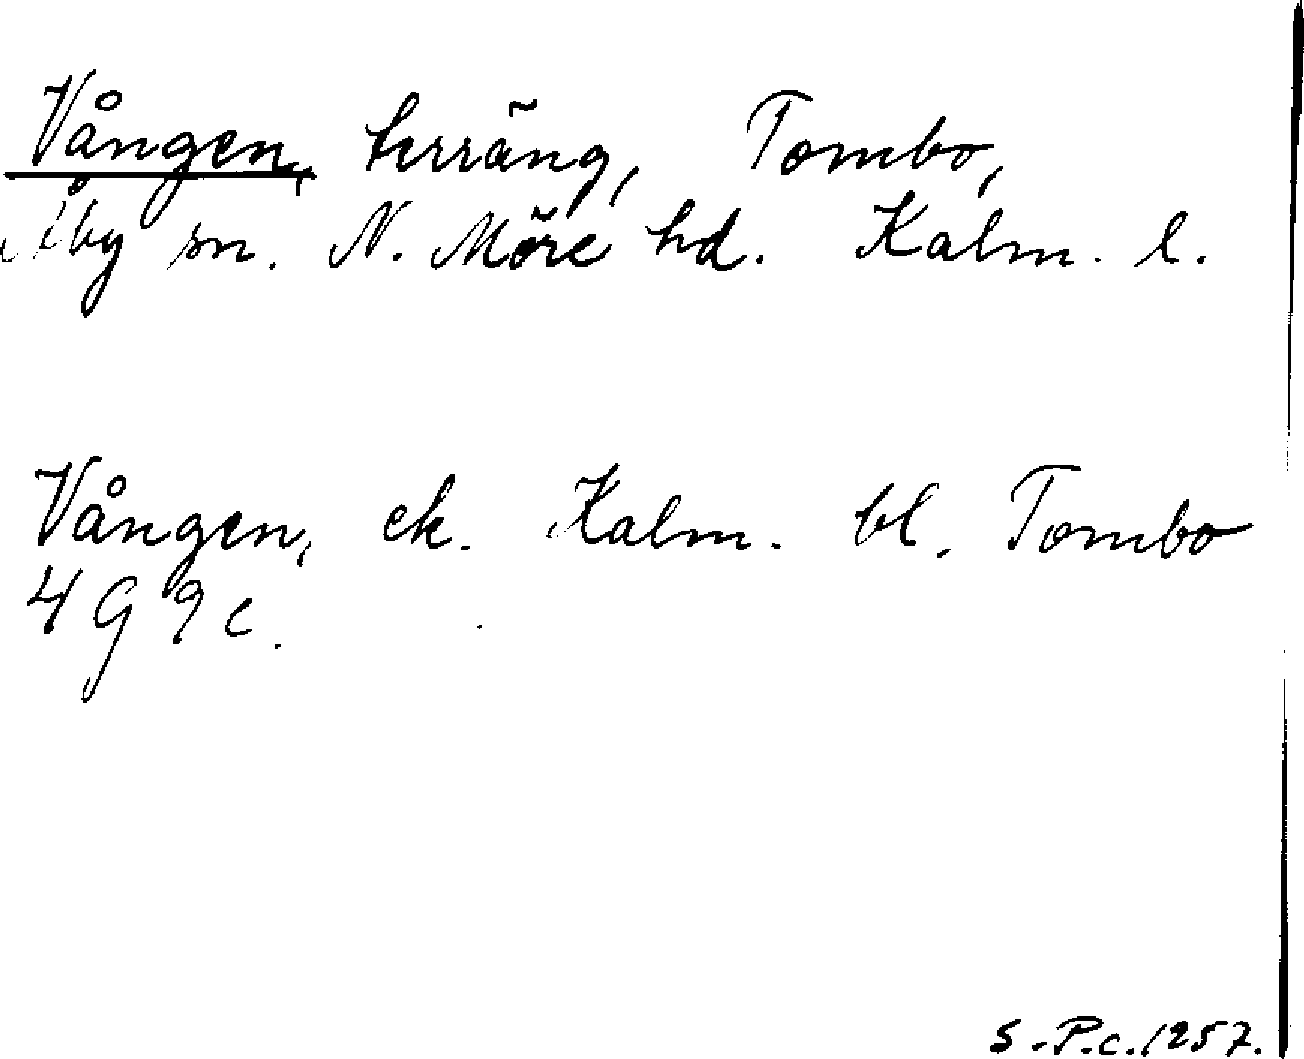 Vången, terräng, Tombo,
Åby sn. N. Möre hd. Kalm. l.
Vången, ek. Kalm. bl. Tombo
4 G 9 c.
S-P.c. 1257.